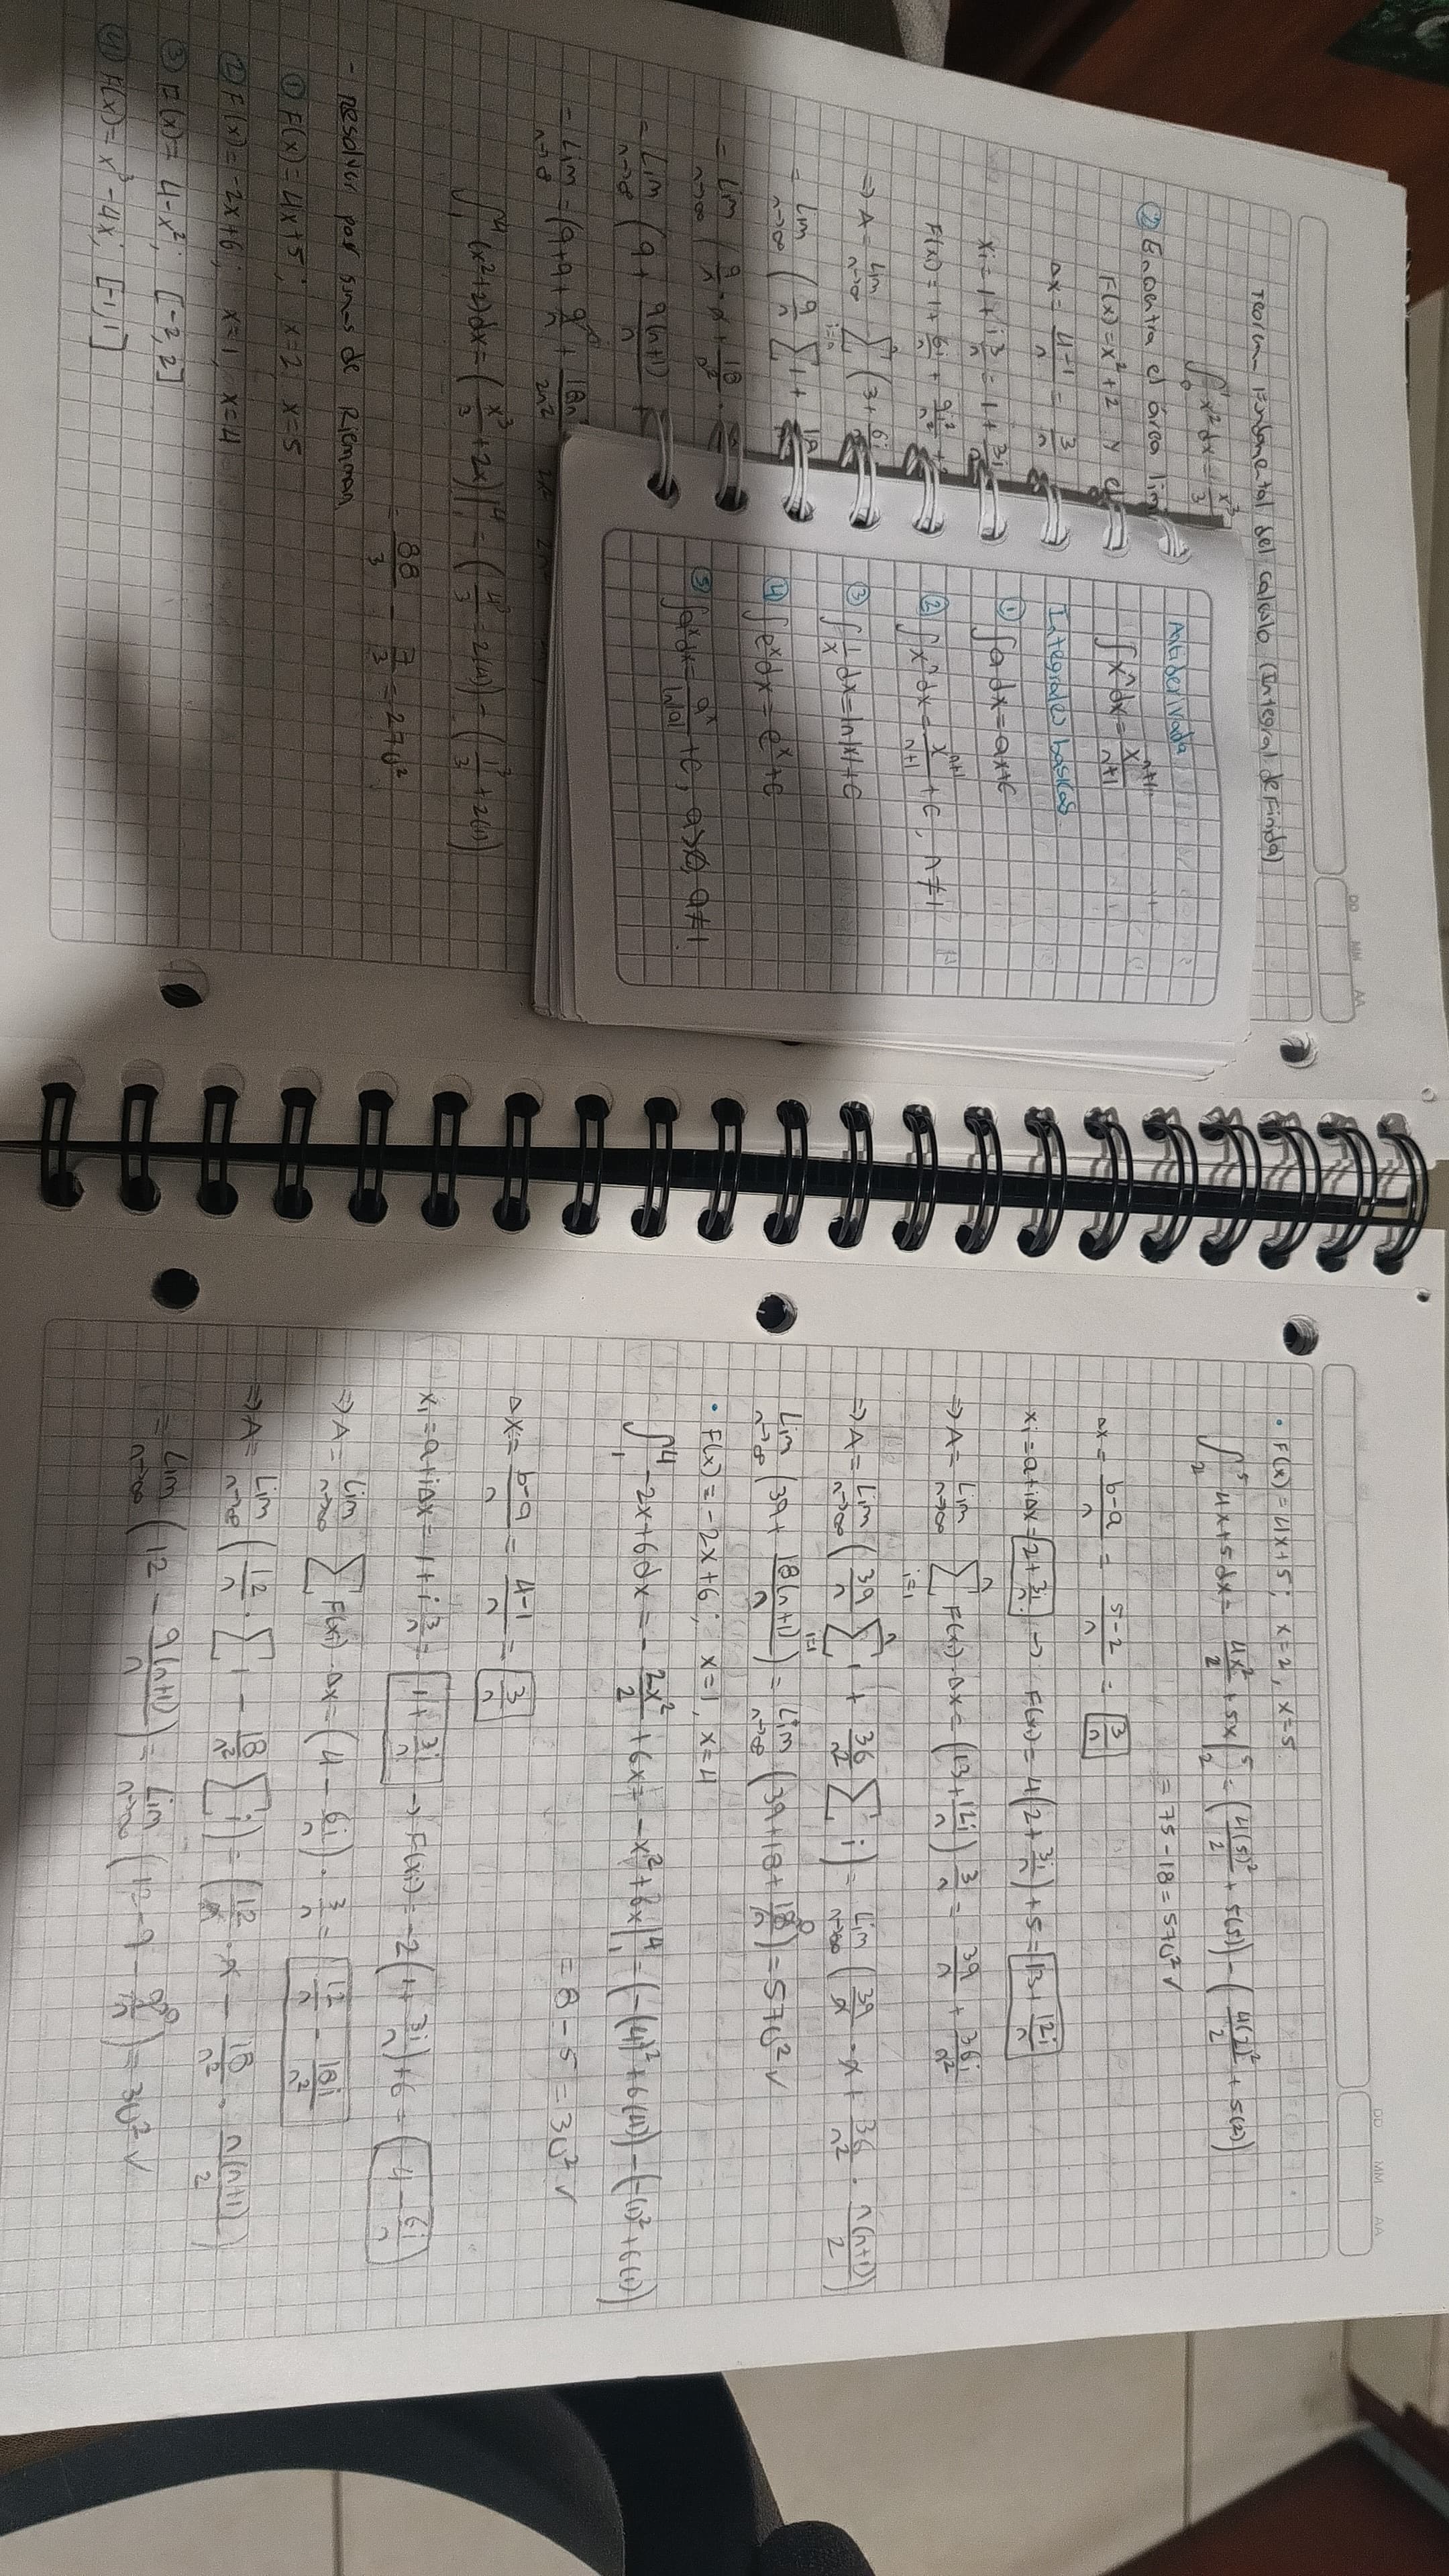 Teorema Fundamental del calculo (Integral definida)
∫₀¹ x² dx = x³/3
② Encontra el área lim
F(x) = x² + 2 y el
Δx = 4-1/n = 3/n
xi = 1 + i 3/n = 1 + 3i/n
F(xi) = 1 + 6i/n + 9i²/n² +
⇒ A = Lim n→∞ Σ (3 + 6i
= Lim n→∞ (9/n Σ 1 + 18
= Lim n→∞ (9/n · n + 18/n²
= Lim n→∞ (9 + 9(n+1)/n +
= Lim n→∞ = (9 + 9 + 9/n + 18n/2n²
∫₁⁴ (x²+2) dx = (x³/3 + 2x)|₁⁴ = (4³/3 = 2(4)) - (1³/3 + 2(1))
= 88/3 - 7/3 = 27u²
- Resolver por sumas de Riemman
① F(x) = 4x + 5; x = 2, x = 5
② F(x) = -2x + 6; x = 1, x = 4
③ F(x) = 4 - x²; [-2, 2]
④ F(x) = x³ - 4x; [-1, 1]
Antiderivada
∫ xⁿ dx = xⁿ⁺¹/n+1
Integrales basicas
① ∫ a dx = ax + c
② ∫ xⁿ dx = xⁿ⁺¹/n+1 + c, n ≠ 1
③ ∫ 1/x dx = ln|x| + c
④ ∫ eˣ dx = eˣ + c
⑤ ∫ aˣ dx = aˣ/ln|a| + c, a > 0, a ≠ 1
DD MM AA
• F(x) = 4x + 5; x = 2, x = 5
∫₂⁵ 4x + 5 dx = 4x²/2 + 5x|₂⁵ = (4(5)²/2 + 5(5)) - (4(2)²/2 + 5(2))
= 75 - 18 = 57u² ✓
Δx = b-a/n = 5-2/n = 3/n
xi = a + iΔx = 2 + 3i/n → F(xi) = 4(2 + 3i/n) + 5 = 13 + 12i/n
⇒ A = Lim n→∞ Σ F(xi) · Δx = (13 + 12i/n) 3/n = 39/n + 36i/n²
⇒ A = Lim n→∞ (39/n Σ 1 + 36/n² Σ i) = Lim n→∞ (39/n · n + 36/n² · n(n+1)/2)
Lim n→∞ (39 + 18(n+1)/n) = Lim n→∞ (39 + 18 + 18/n⁰) = 57u² ✓
• F(x) = -2x + 6; x = 1, x = 4
∫₁⁴ -2x + 6 dx = -2x²/2 + 6x = -x² + 6x|₁⁴ = (-(4)² + 6(4)) - (-(1)² + 6(1))
= 8 - 5 = 3u² ✓
Δx = b-a/n = 4-1/n = 3/n
xi = a + iΔx = 1 + i 3/n = 1 + 3i/n → F(xi) = -2(1 + 3i/n) + 6 = 4 - 6i/n
⇒ A = Lim n→∞ Σ F(xi) · Δx = (4 - 6i/n) · 3/n = 12/n - 18i/n²
⇒ A = Lim n→∞ (12/n · Σ 1 - 18/n² Σ i) = (12/n · n - 18/n² · n(n+1)/2)
= Lim n→∞ (12 - 9(n+1)/n) = Lim n→∞ (12 - 9 - 9/n⁰) = 3u² ✓
DD MM AA